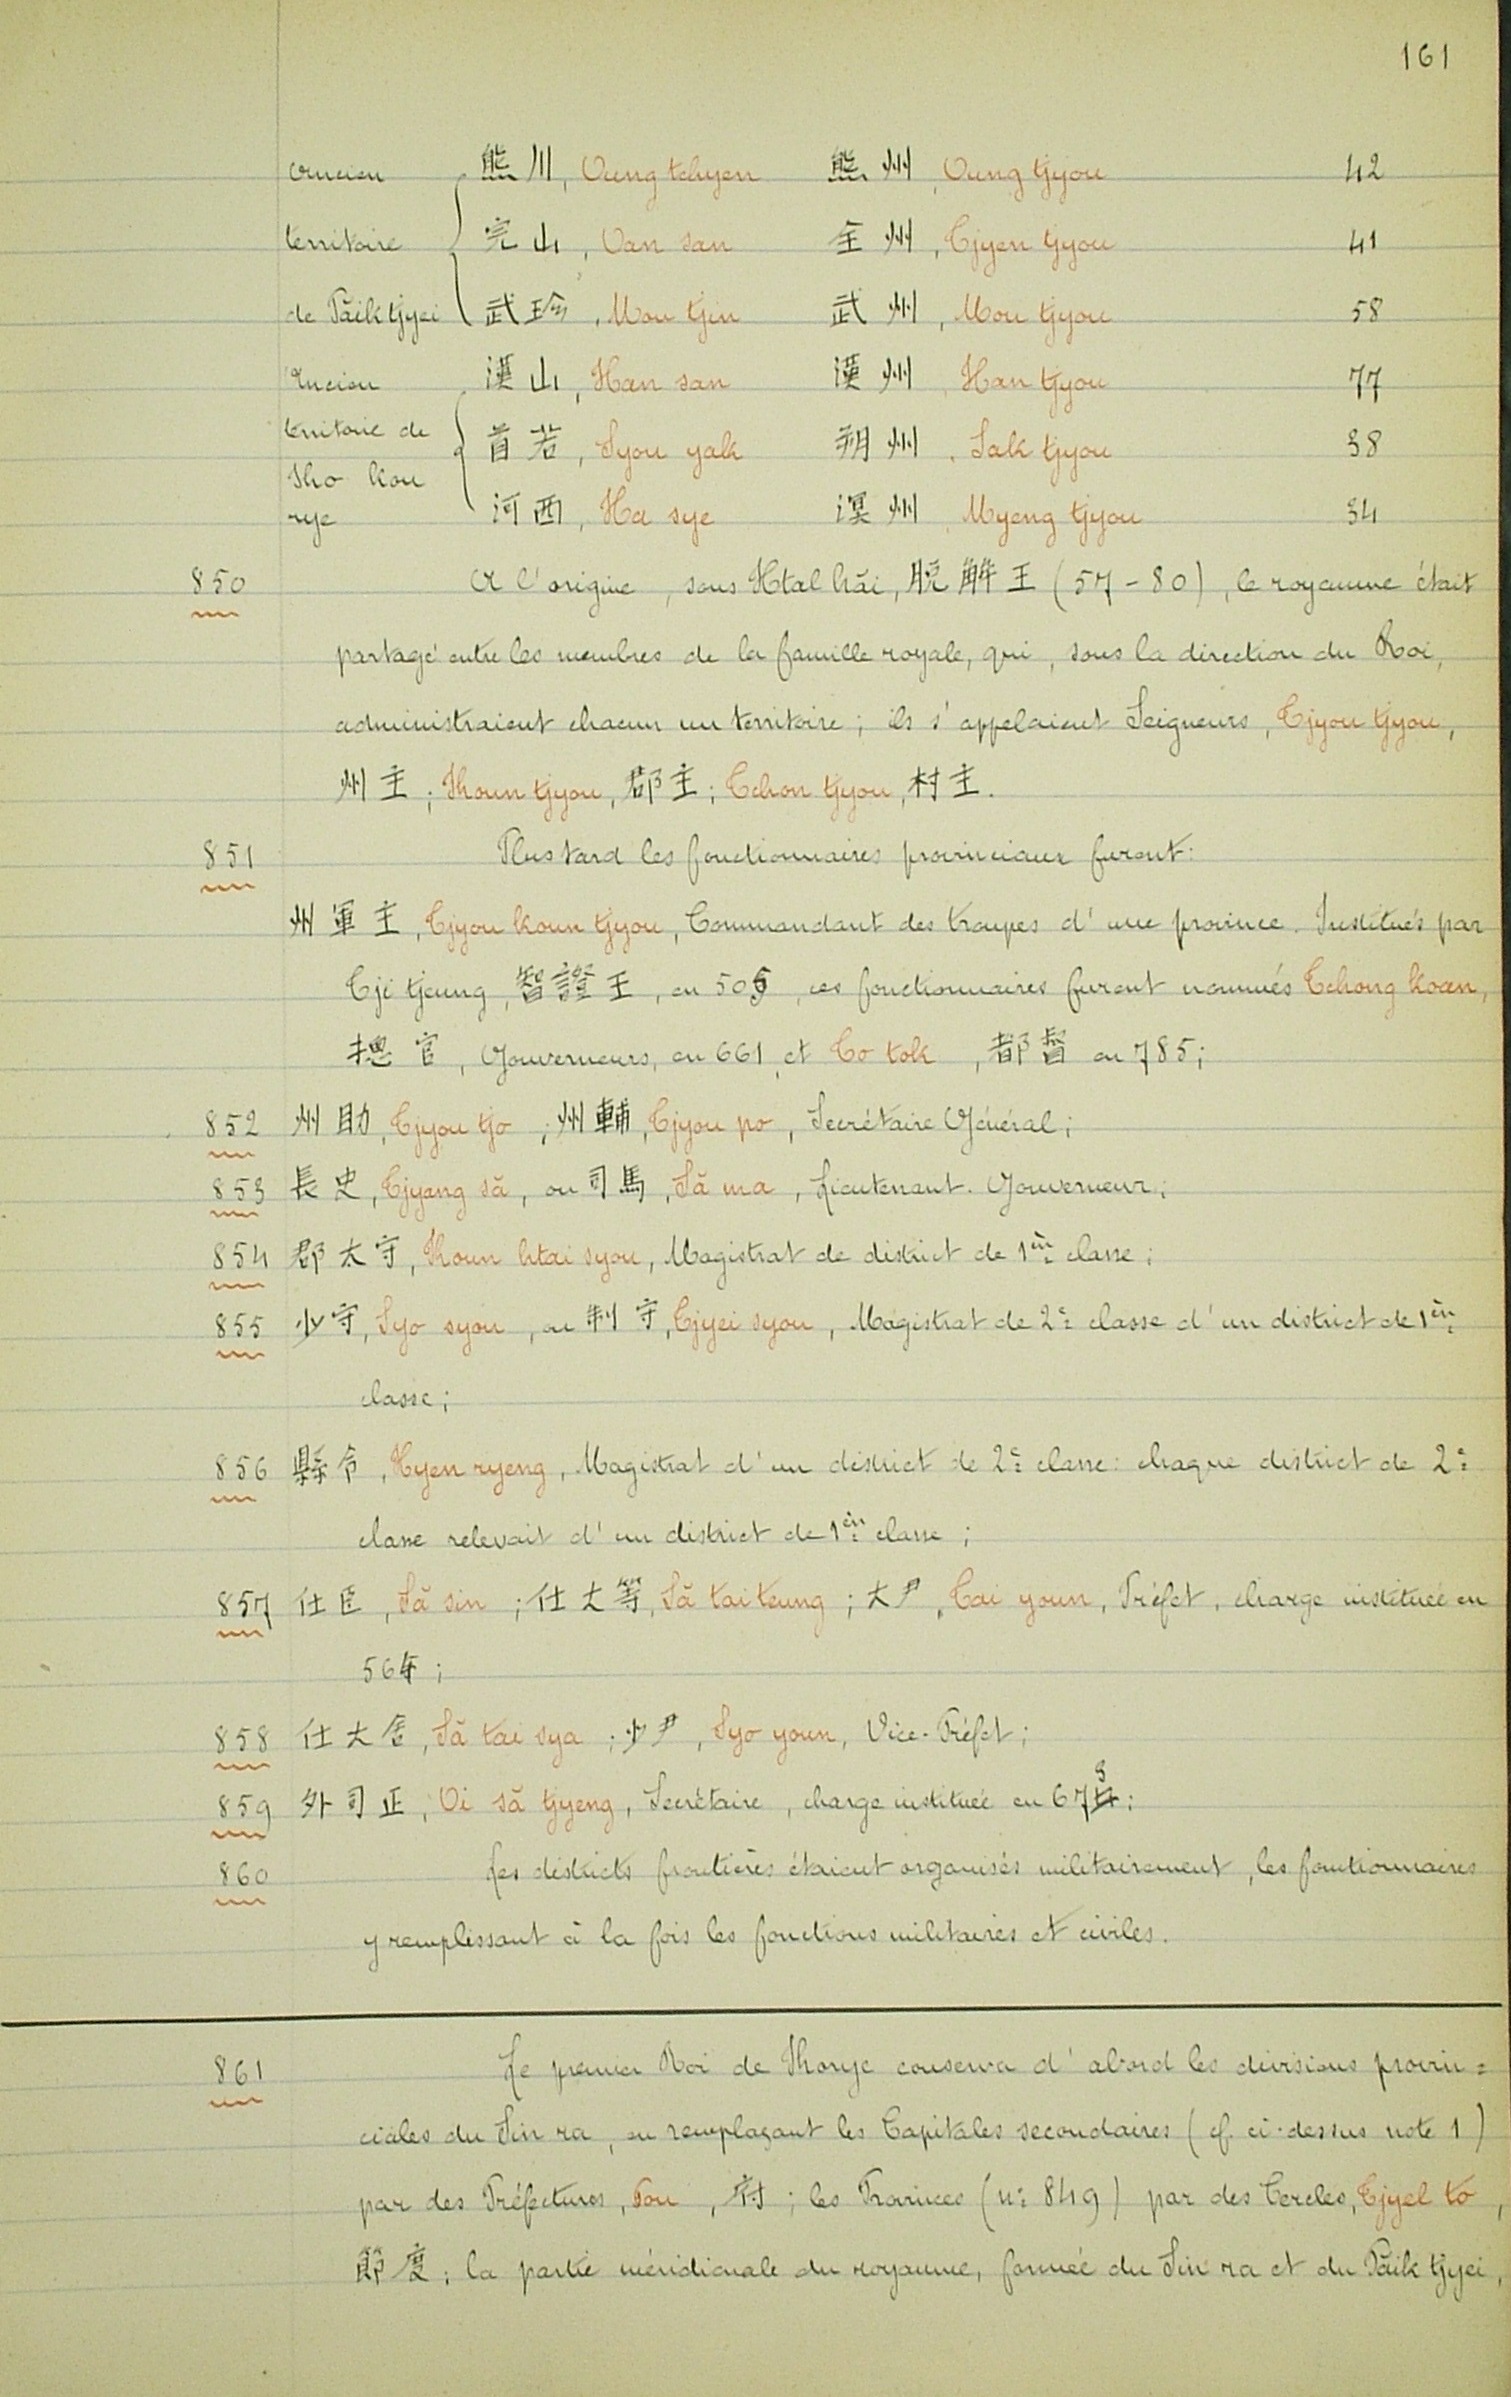 161
Ancien 熊川, Oung tchyen 熊州, Oung tjyou 42
territoire 完山, Oan san 全州, Tjyen tjyou 41
de Păik tjyei 武珍, Mou tjin 武州, Mou tjyou 58
Ancien 漢山, Han san 漢州, Han tjyou 77
territoire de 首若, Syou yak 朔州, Sak tjyou 38
Kho kou
rye 河西, Ha sye 溟州, Myeng tjyou 34
850 A l'origine, sous Htal hăi, 脫解王 (57-80), le royaume était
partagé entre les membres de la famille royale, qui, sous la direction du Roi,
administraient chacun un territoire; ils s'appelaient Seigneurs, Tjyou tjyou,
州主; Khoun tjyou, 郡主; Tchon tjyou, 村主.
851 Plus tard les fonctionnaires provinciaux furent:
州軍主, Tjyou koun tjyou, Commandant des troupes d'une province. Institués par
Tji tjeung, 智證王, en 505, ces fonctionnaires furent nommés Tchong koan,
摠官, Gouverneurs, en 661, et To tok, 都督 en 785;
852 州助, Tjyou tjo; 州輔, Tjyou po, Secrétaire Général;
853 長史, Tjyang să, ou 司馬, Să ma, Lieutenant-Gouverneur;
854 郡太守, Khoun htai syou, Magistrat de district de 1ère classe;
855 少守, Syo syou, ou 制守, Tjyei syou, Magistrat de 2e classe d'un district de 1ère
classe;
856 縣令, Hyen ryeng, Magistrat d'un district de 2e classe: chaque district de 2e
classe relevait d'un district de 1ère classe;
857 仕臣, Să sin; 仕大等, Să tai teung; 大尹, Tai youn, Préfet, charge instituée en
564;
858 仕大舍, Să tai sya; 少尹, Syo youn, Vice-Préfet;
859 外司正, Oi să tjyeng, Secrétaire, charge instituée en 673;
860 Les districts frontières étaient organisés militairement, les fonctionnaires
y remplissant à la fois les fonctions militaires et civiles.
861 Le premier Roi de Korye conserva d'abord les divisions provin=
ciales du Sin ra, en remplaçant les Capitales secondaires (cf. ci-dessus note 1)
par des Préfectures, Pou, 府; les Provinces (no 849) par des Cercles, Tjyel to,
節度; la partie méridionale du royaume, formée du Sin ra et du Păik tjyei,